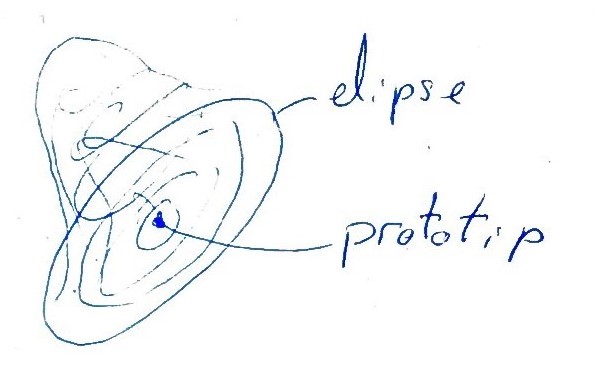 elipse
prototip